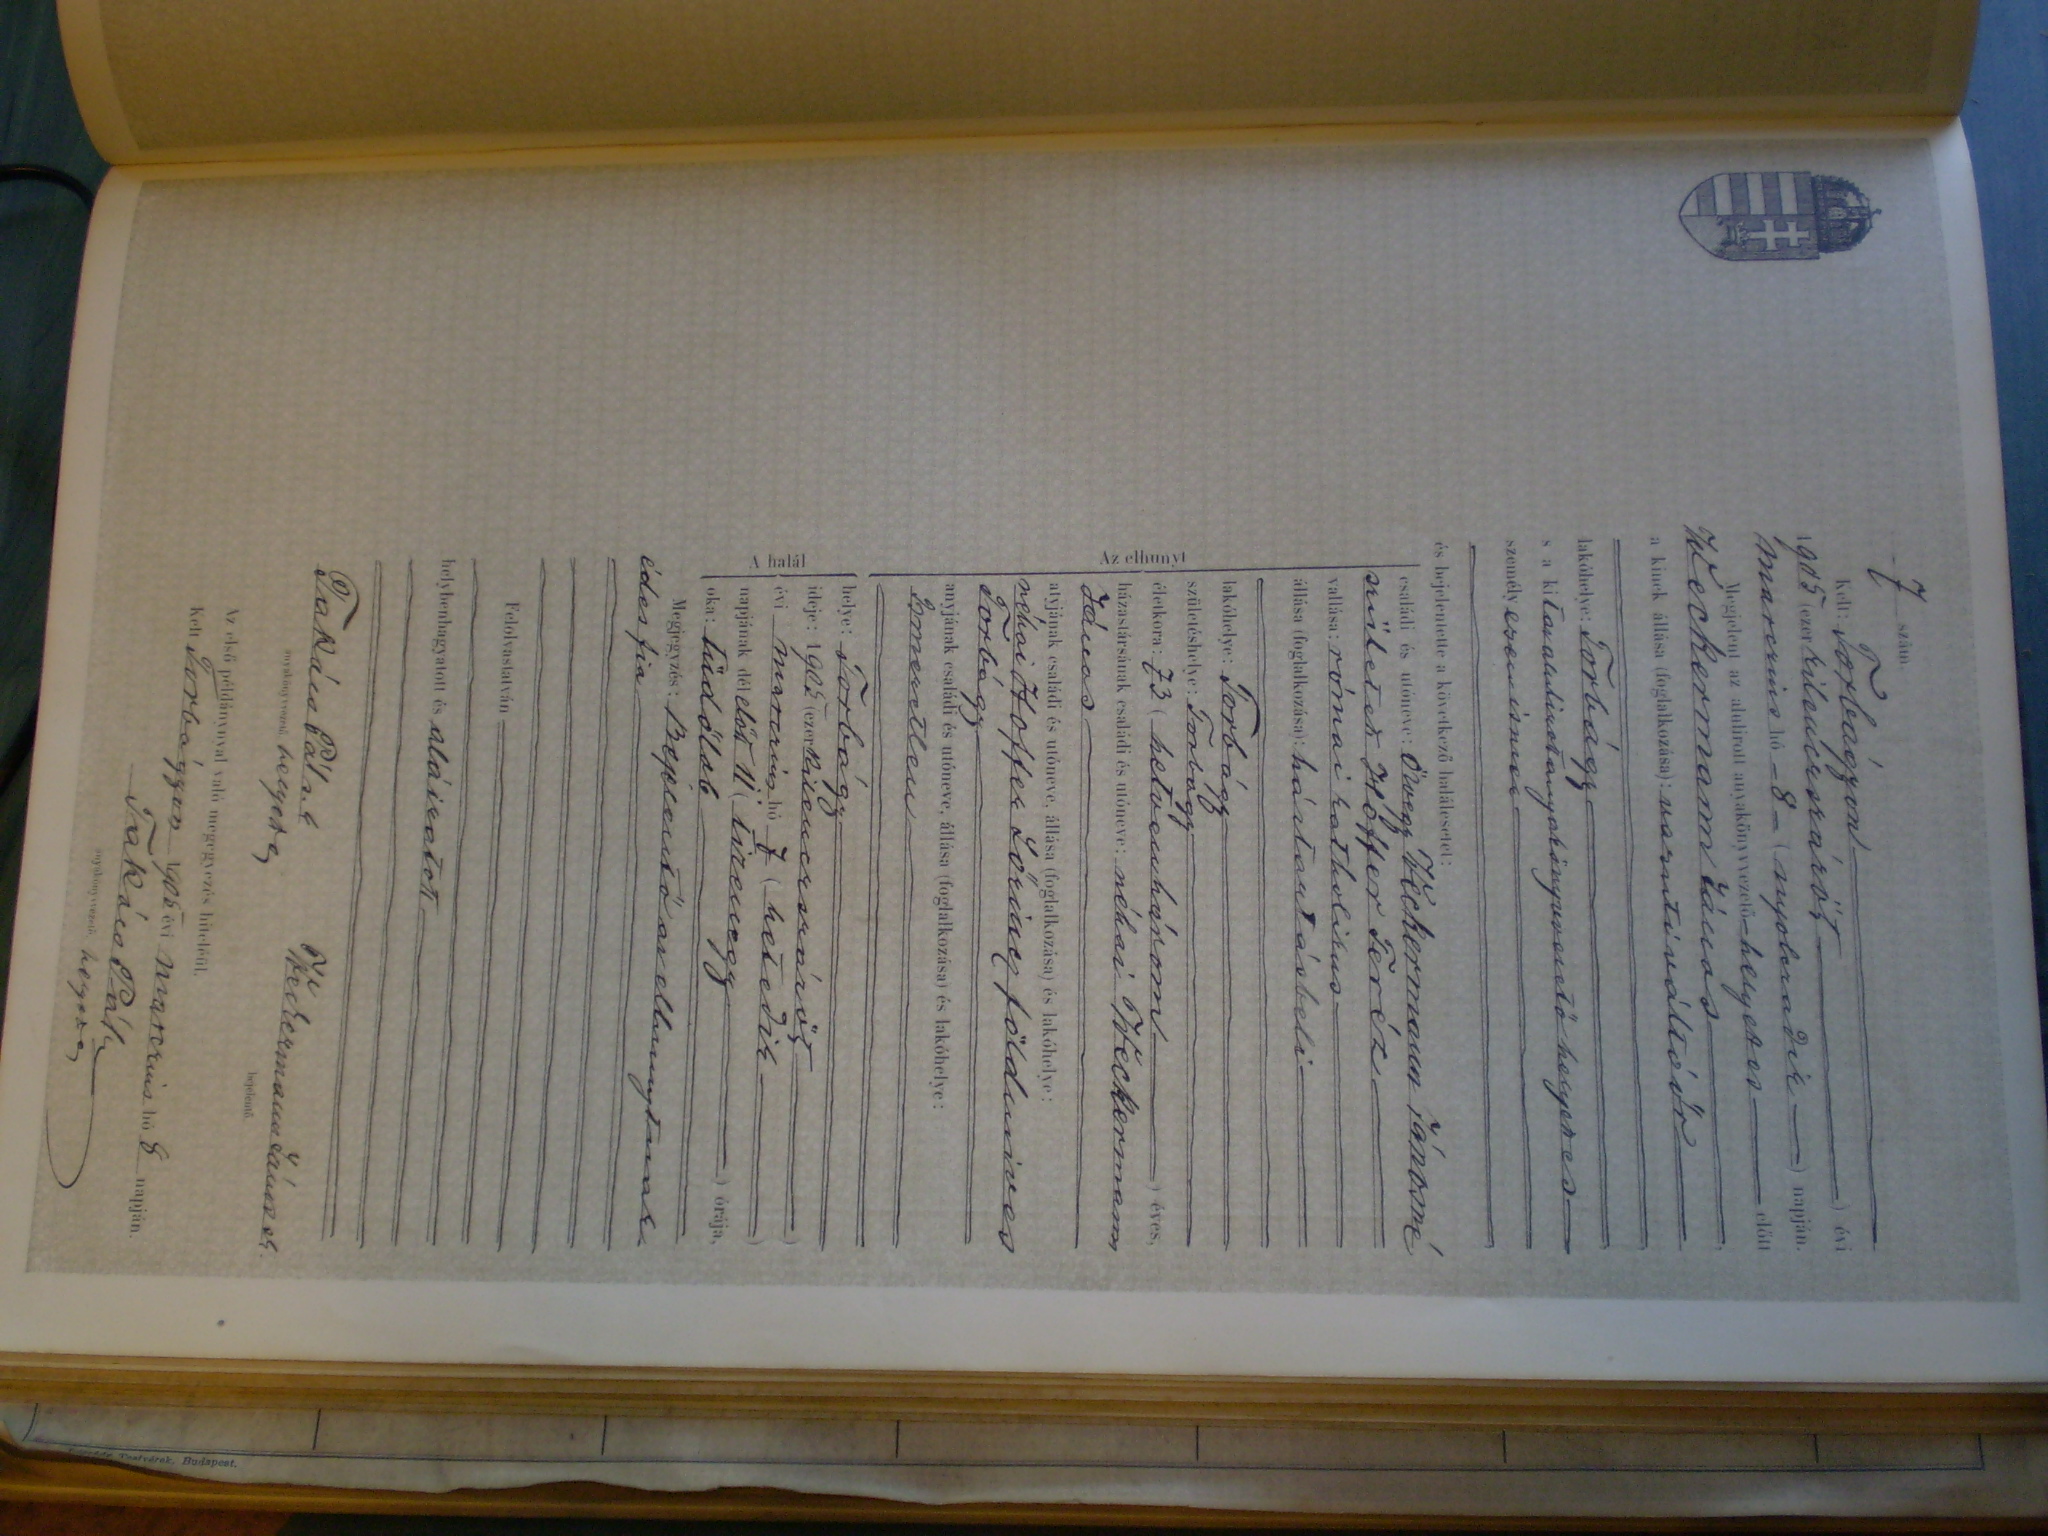 7 szám.
Kelt: Torbágyon ) évi
1905 (ezerkilencszázöt
marczius hó 8 ( nyolczadik ) napján.
Megjelent az alulirott anyakönyvvezető-helyettes előtt
Weckermann János
a kinek állása (foglalkozása): vasuti váltóőr
lakóhelye: Torbágy
s a ki az alulirott anyakönyvvezető helyettes
személyesen ismer
és bejelentette a következő halálesetet:
Az elhunyt
családi és utóneve: Özvegy Weckermann Jánosné
született Hoffer Teréz
vallása: római katholikus
állása (foglalkozása): háztartásbeli
lakóhelye: Torbágy
születéshelye: Torbágy
életkora: 73 ( hetvenhárom ) éves,
házastársának családi és utóneve: néhai Weckermann
János
atyjának családi és utóneve, állása (foglalkozása) és lakóhelye:
néhai Hoffer Lőrincz földmives
Torbágy
anyjának családi és utóneve, állása (foglalkozása) és lakóhelye:
Ismeretlen
A halál
helye: Torbágy
ideje: 1905 (ezerkilencszázöt )
évi marczius hó 7 ( hetedik )
napjának délelőtt 11 ( tizenegy ) órája,
oka: tüdőlob
Megjegyzés: Bejelentő az elhunytnak
édes fia
Felolvastatván
helybenhagyatott és aláiratott
Takács Pál s. k. Weckermann János sk.
anyakönyvvezető helyettes bejelentő.
Az első példánynyal való megegyezés hiteléül.
Kelt Torbágyon 1905 évi marczius hó 8 napján.
Takács Pál
anyakönyvvezető helyettes
Testvérek, Budapest.